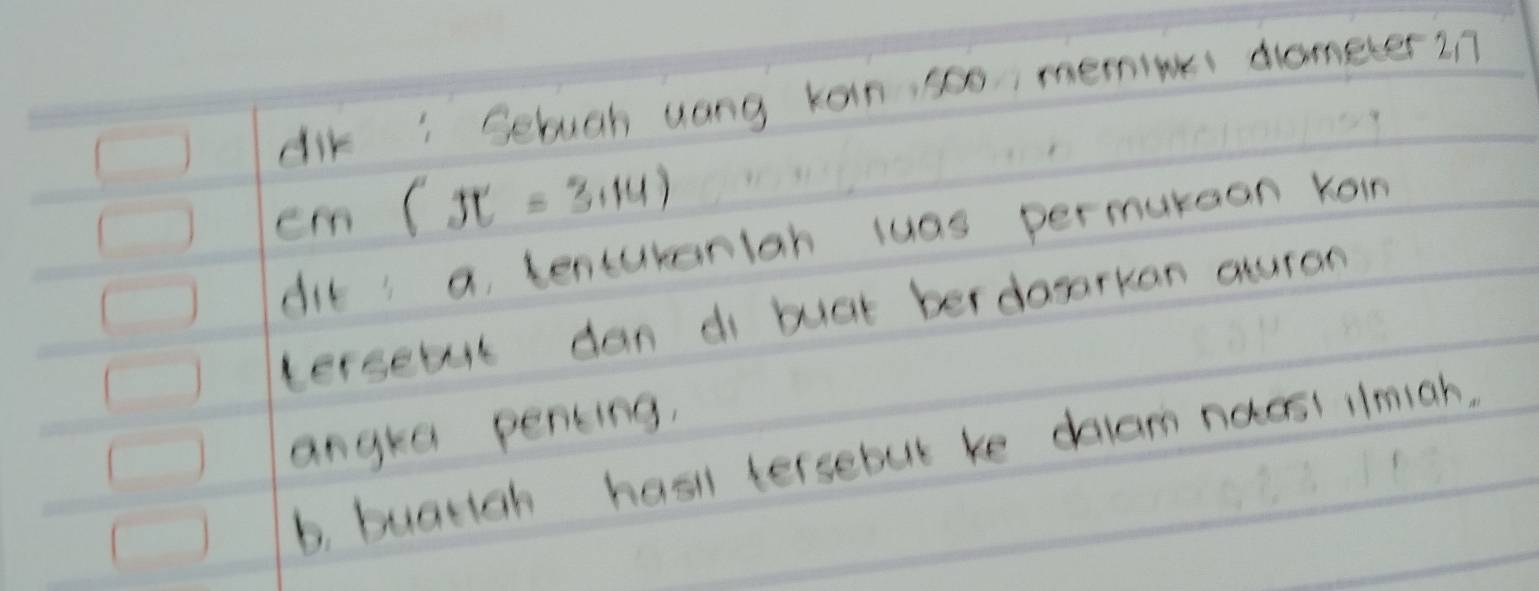 dik : Sebuah uang koin ,500, memiliki diameter 2,7
cm (π = 3,14)
dit : a. tentukanlah luas permukaan koin
tersebut dan di buat berdasarkan aturan
angka penting.
b. buatlah hasil tersebut ke dalam notasi ilmiah.